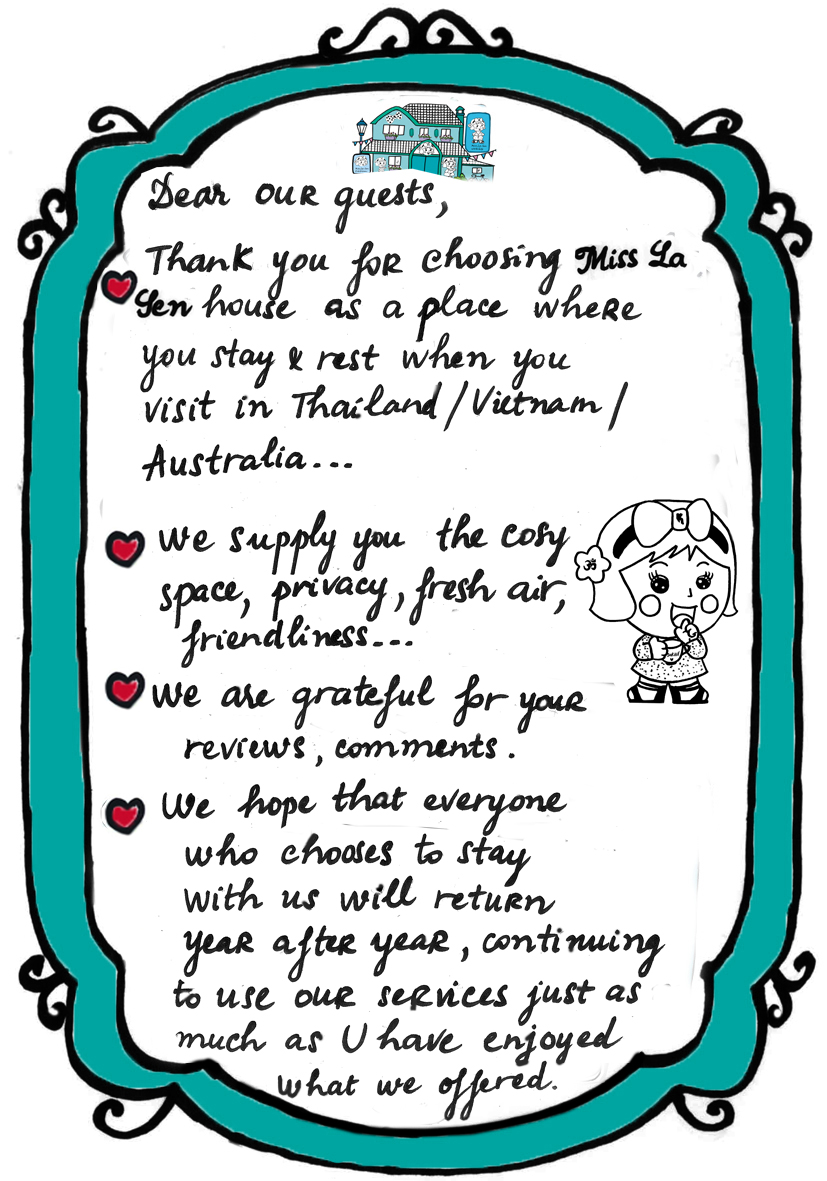 Dear our guests,
Thank you for choosing Miss La
Sen house as a place where
you stay & rest when you
visit in Thailand/Vietnam/
Australia...
We supply you the cosy
space, privacy, fresh air,
friendliness...
We are grateful for your
reviews, comments.
We hope that everyone
who chooses to stay
with us will return
year after year, continuing
to use our services just as
much as U have enjoyed
what we offered.